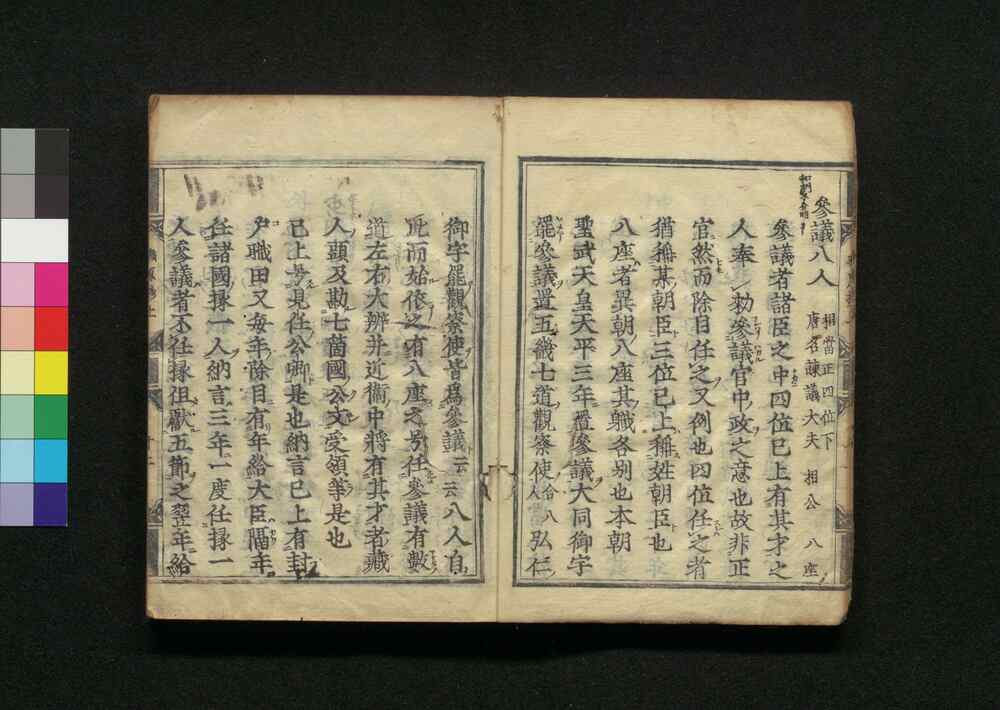 參議八人 相當正四位下 唐名諫議大夫 相公 八座
參議者諸臣之中四位已上有其才之
人奉 勅參議官中政之意也故非正
官然而除目任之又例也四位任之者
猶稱某朝臣三位已上稱姓朝臣也
八座者異朝八座其職各別也本朝
聖武天皇天平三年置參議大同御宇
罷參議置五畿七道觀察使合八人弘仁
御宇罷觀察使皆爲參議云云八人自
此而始後之有八座之号任參議有數
道左右大辨并近衞中將有其才者藏
人頭及勘七箇國公文受領等是也
已上見任公卿是也納言已上有封
戸職田又每年除目有年給大臣隔年
任諸國掾一人納言三年一度任掾一
人參議者不任掾但獻五節之翌年給